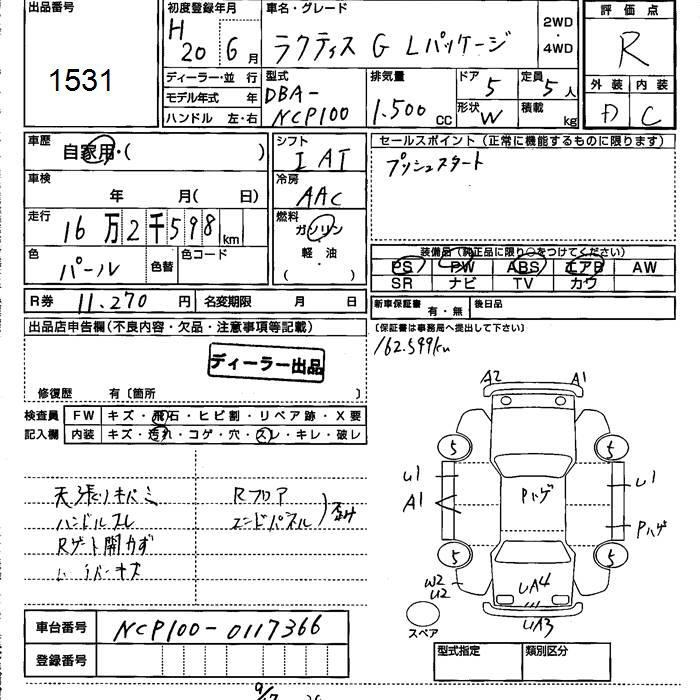 出品番号
1531
初度登録年月
H 20 6月
車名・グレード
ラクティス G Lパッケージ
2WD
・
4WD
評価点
R
ディーラー・並行
モデル年式 年
ハンドル 左・右
型式
DBA-
NCP100
排気量
1.500 CC
ドア 5
形状 W
定員 5人
積載 kg
外装 内装
C
車歴
自家用・( )
車検
年 月( 日)
走行
16万2千598km
色
パール
色替
色コード
シフト
IAT
冷房
AAC
燃料
ガソリン
軽・油
( )
セールスポイント(正常に機能するものに限ります)
プッシュスタート
装備品(純正品に限り○をつけてください)
PS PW ABS エアB AW
SR ナビ TV カワ
R券 11.270 円
名変期限 月 日
新車保証書 有・無
後日品
(保証書は事務局へ提出して下さい)
162.599km
出品店申告欄(不良内容・欠品・注意事項等記載)
ディーラー出品
修復歴 有〔箇所 〕
検査員
記入欄
FW キズ・飛石・ヒビ割・リペア跡・X要
内装 キズ・汚れ・コゲ・穴・スレ・キレ・破レ
天張りキバミ
ハンドルスレ
Rゲート開カず
Rフロア
エンドパネル
A2
A1
5
5
U1
A1
Pハゲ
U1
Pハゲ
5
5
W2
U2
UA4
UA3
スペア
車台番号 NCP100-0117366
登録番号
型式指定
類別区分